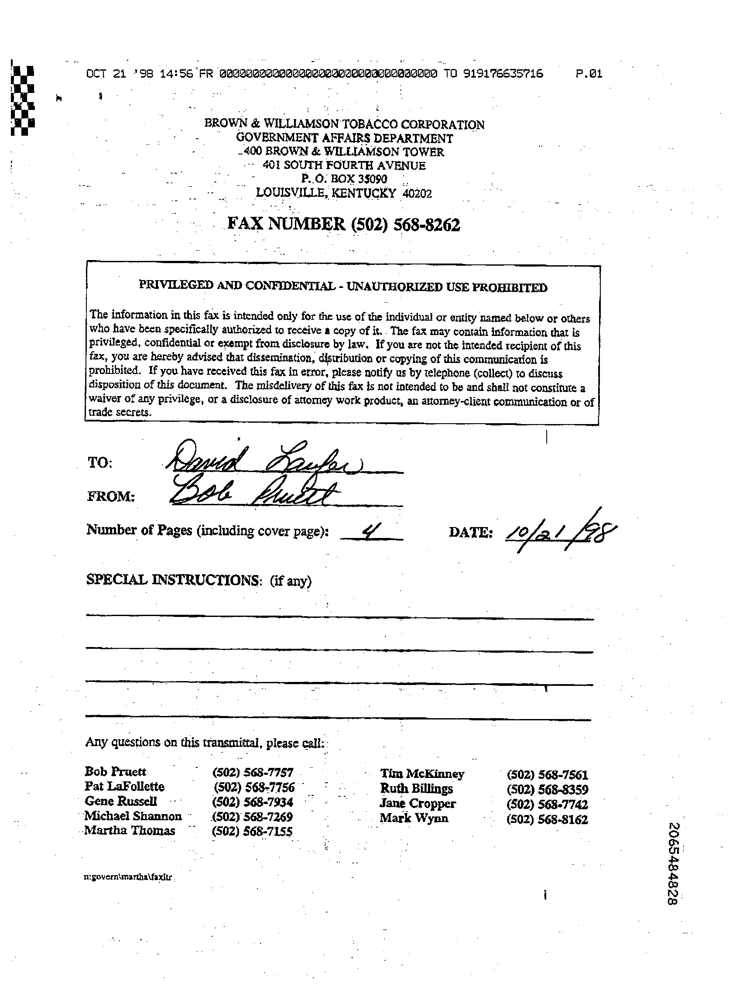 OCT 21 '98 14:56 FR 00000000000000000000000000000000 TO 919176635716 P.01
BROWN & WILLIAMSON TOBACCO CORPORATION
GOVERNMENT AFFAIRS DEPARTMENT
400 BROWN & WILLIAMSON TOWER
401 SOUTH FOURTH AVENUE
P. O. BOX 35090
LOUISVILLE, KENTUCKY 40202
FAX NUMBER (502) 568-8262
PRIVILEGED AND CONFIDENTIAL - UNAUTHORIZED USE PROHIBITED
The information in this fax is intended only for the use of the individual or entity named below or others
who have been specifically authorized to receive a copy of it. The fax may contain information that is
privileged, confidential or exempt from disclosure by law. If you are not the intended recipient of this
fax, you are hereby advised that dissemination, distribution or copying of this communication is
prohibited. If you have received this fax in error, please notify us by telephone (collect) to discuss
disposition of this document. The misdelivery of this fax is not intended to be and shall not constitute a
waiver of any privilege, or a disclosure of attorney work product, an attorney-client communication or of
trade secrets.
TO: David Laufer
FROM: Bob Pruett
Number of Pages (including cover page): 4 DATE: 10/21/98
SPECIAL INSTRUCTIONS: (if any)
Any questions on this transmittal, please call:
Bob Pruett (502) 568-7757 Tim McKinney (502) 568-7561
Pat LaFollette (502) 568-7756 Ruth Billings (502) 568-8359
Gene Russell (502) 568-7934 Jane Cropper (502) 568-7742
Michael Shannon (502) 568-7269 Mark Wynn (502) 568-8162
Martha Thomas (502) 568-7155
n:govern\martha\faxltr
2065484828